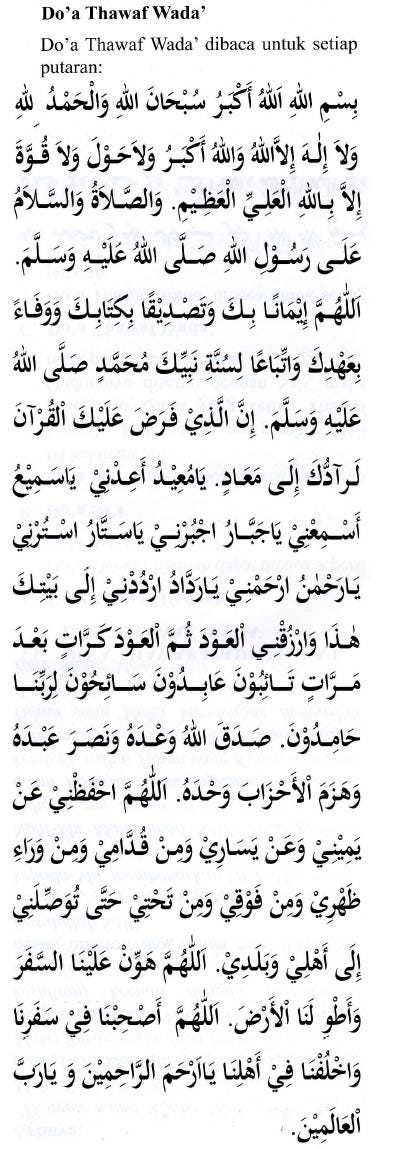 Do'a Thawaf Wada'
Do'a Thawaf Wada' dibaca untuk setiap
putaran:
بِسْمِ اللهِ اَللهُ أَكْبَرُ سُبْحَانَ اللهِ وَالْحَمْدُ لِلّٰهِ
وَلاَ إِلٰـهَ إِلاَّاللهُ وَاللهُ أَكْبَـرُ وَلاَحَوْلَ وَلاَ قُـوَّةَ
إِلاَّ بِـاللهِ الْعَلِـيِّ الْعَظِـيْمِ. وَالصَّـلاَةُ وَالسَّـلاَمُ
عَلَـى رَسُـوْلِ اللهِ صَـلَّى اللهُ عَلَيْـهِ وَسَـلَّمَ.
اَللّٰهُـمَّ إِيْمَانًـا بِـكَ وَتَصْـدِيْقًا بِكِتَابِـكَ وَوَفَـاءً
بِعَهْدِكَ وَاتِّبَاعًا لِسُنَّةِ نَبِيِّكَ مُحَمَّدٍ صَلَّى اللهُ
عَلَيْهِ وَسَلَّمَ. إِنَّ الَّذِيْ فَـرَضَ عَلَيْكَ الْقُرْآنَ
لَـرَآدُّكَ إِلَى مَعَـادٍ. يَامُعِيْـدُ أَعِـدْنِيْ يَاسَـمِيْعُ
أَسْـمِعْنِيْ يَاجَبَّـارُ اجْبُرْنِـيْ يَاسَـتَّارُ اسْـتُرْنِيْ
يَـارَحْمٰنُ ارْحَمْنِـيْ يَـارَدَّادُ ارْدُدْنِـيْ إِلَى بَيْتِـكَ
هٰـذَا وَارْزُقْنِـي الْعَـوْدَ ثُـمَّ الْعَـوْدَ كَـرَّاتٍ بَعْـدَ
مَـرَّاتٍ تَـائِبُوْنَ عَابِـدُوْنَ سَـائِحُوْنَ لِرَبِّنَـا
حَامِـدُوْنَ. صَـدَقَ اللهُ وَعْـدَهُ وَنَصَـرَ عَبْـدَهُ
وَهَـزَمَ الْأَحْـزَابَ وَحْـدَهُ. اَللّٰهُـمَّ احْفَظْنِـيْ عَنْ
يَمِيْنِـيْ وَعَـنْ يَسَـارِيْ وَمِـنْ قُـدَّامِيْ وَمِـنْ وَرَاءِ
ظَهْرِيْ وَمِنْ فَوْقِيْ وَمِنْ تَحْتِيْ حَتَّى تُوَصِّلَنِيْ
إِلَى أَهْلِيْ وَبَلَدِيْ. اَللّٰهُمَّ هَوِّنْ عَلَيْنَا السَّفَرَ
وَأَطْوِ لَنَا الْأَرْضَ. اَللّٰهُمَّ أَصْحِبْنَا فِيْ سَفَرِنَا
وَاخْلُفْنَا فِيْ أَهْلِنَا يَاأَرْحَمَ الرَّاحِمِيْنَ وَ يَارَبَّ
الْعَالَمِيْنَ.